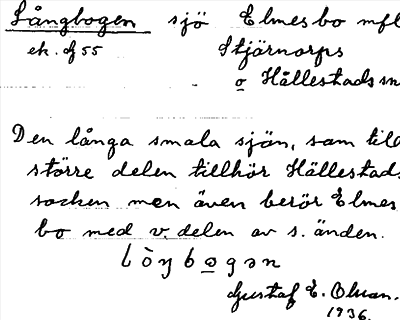 Långbogen sjö Elmesbo mfl
ek. bl 55 Stjärnorps
o Hällestads sn
Den långa smala sjön, som till
större delen tillhör Hällestads
socken men även berör Elmes
bo med v. delen av s. änden.
Gustaf E. Olsson.
1936.